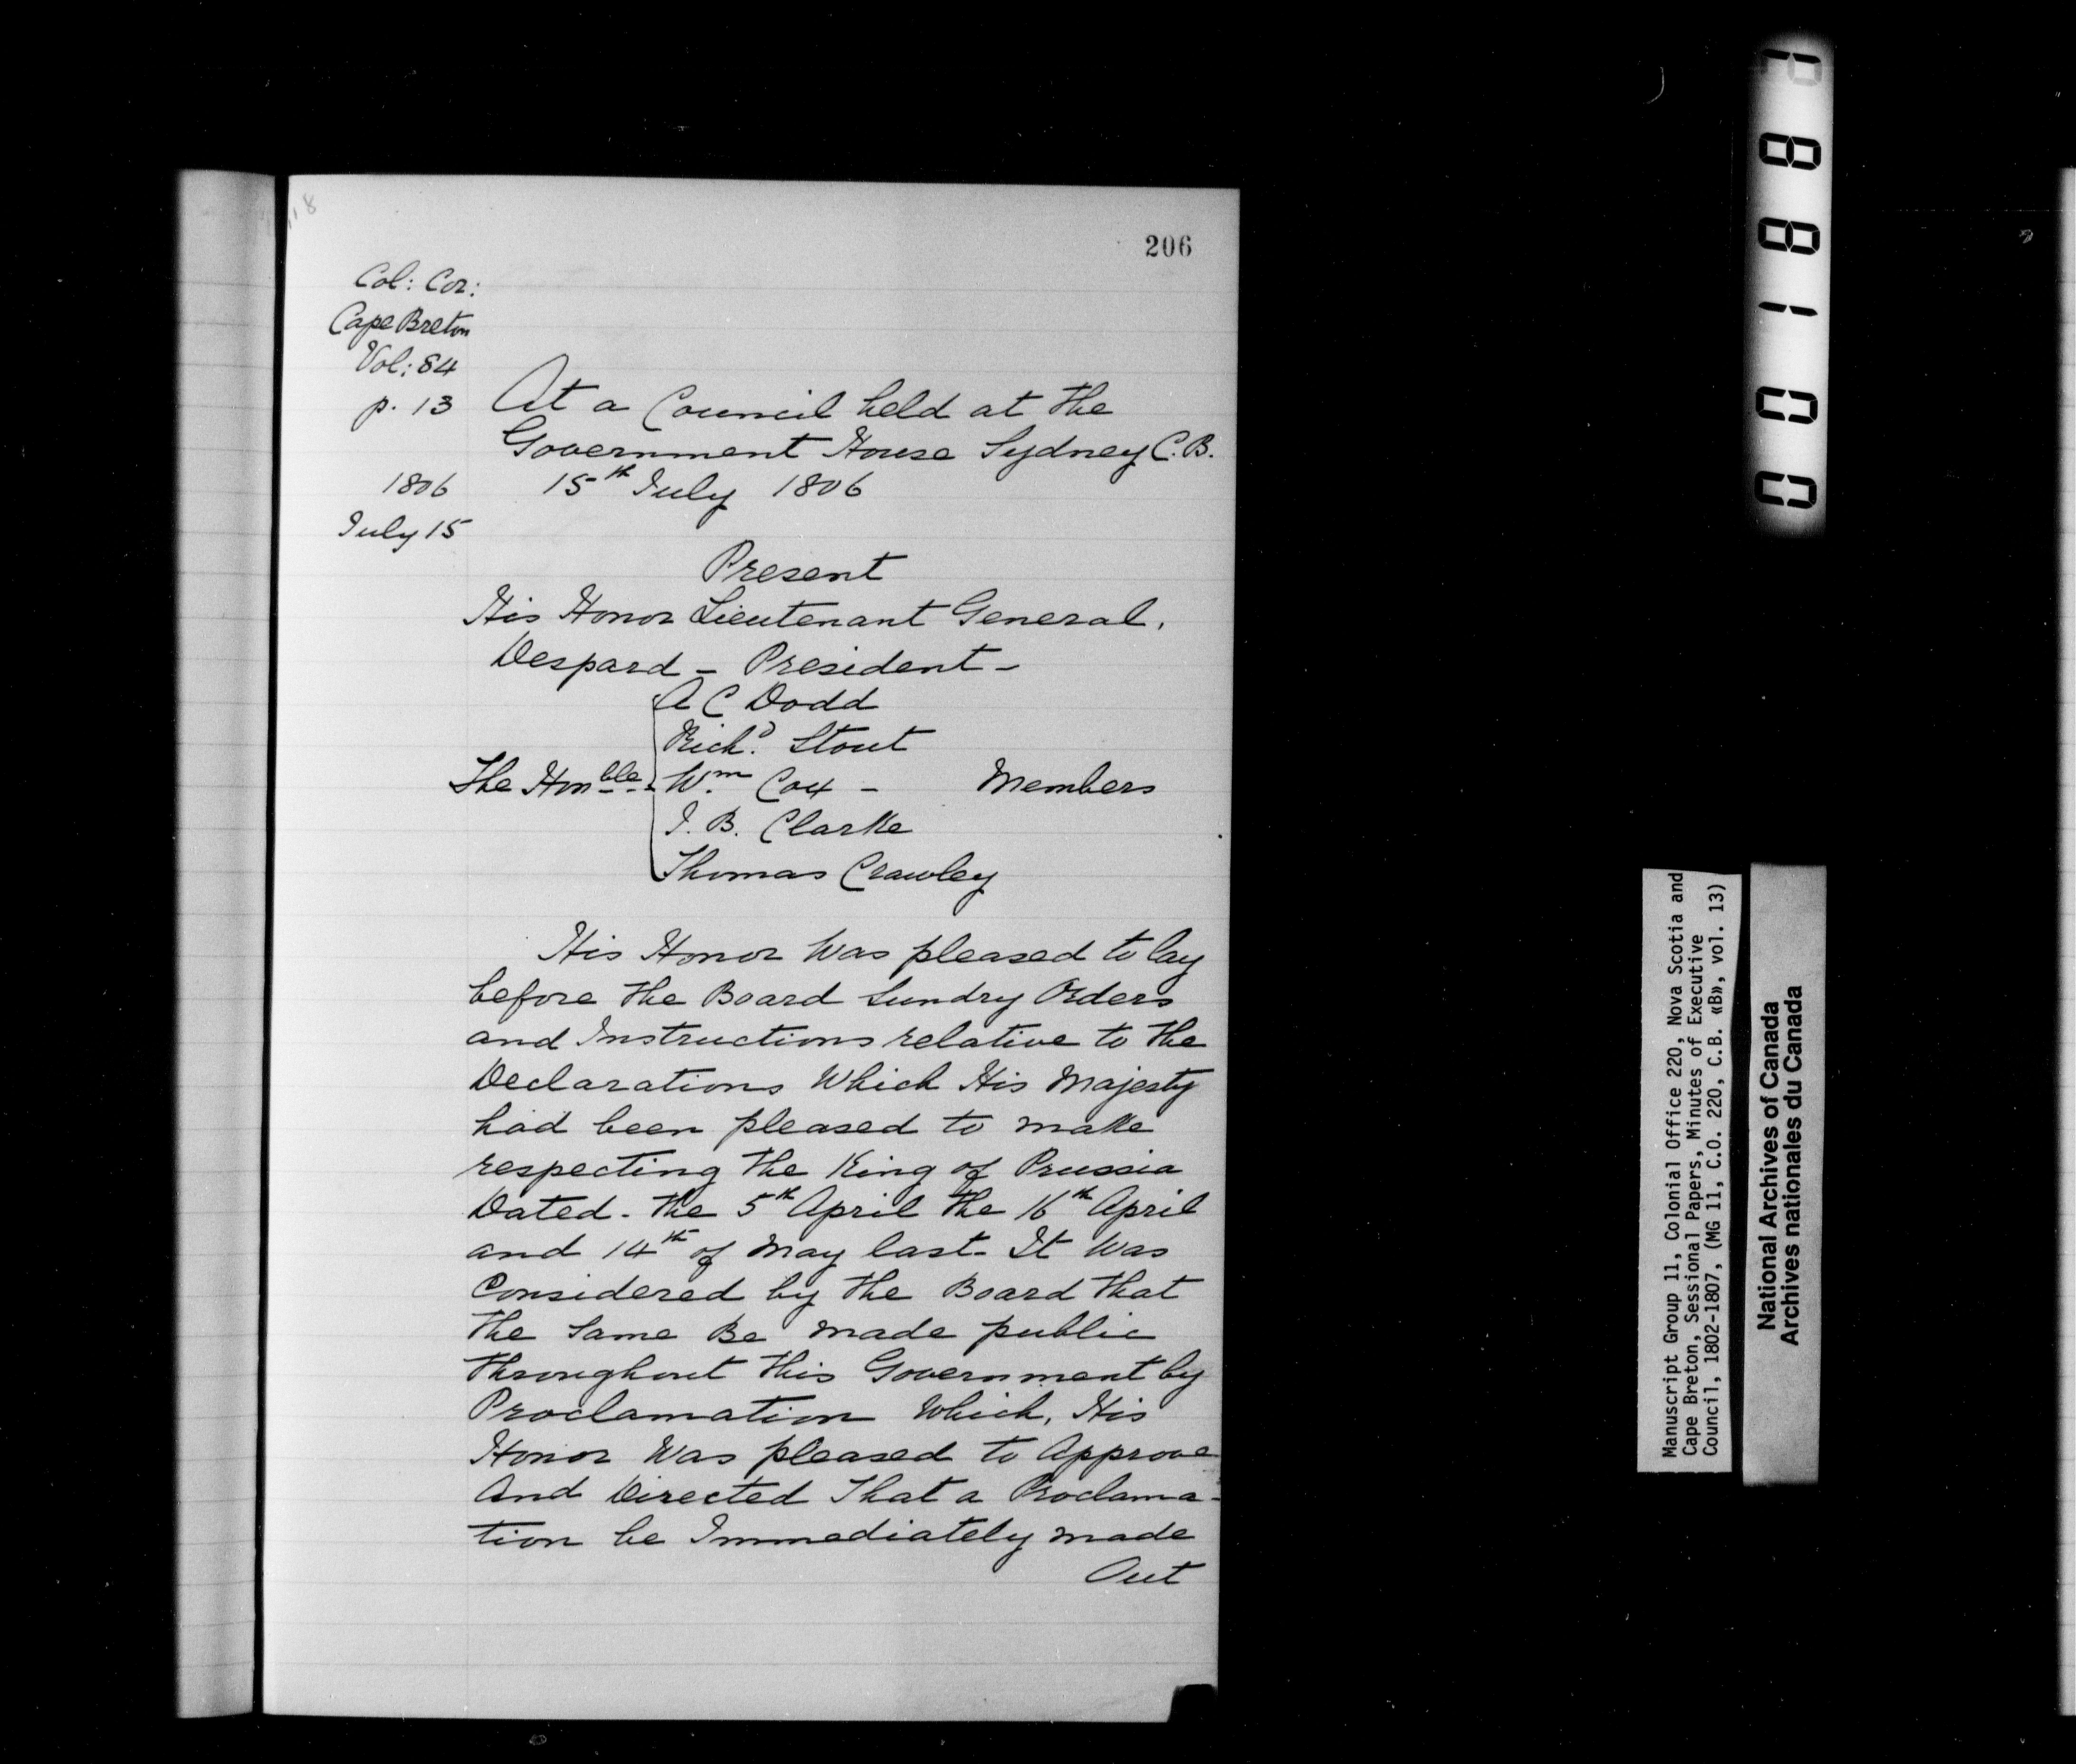 206
Col: Cor:
Cape Breton
Vol: 84
p. 13
1806
July 15
At a Council held at the
Government House Sydney C.B.
15th July 1806
Present
His Honor Lieutenant General.
Despard - President -
A C Dodd
Richd. Stout
The Honble. Wm. Cox - Members
I. B. Clarke
Thomas Crawley
His Honor Was pleased to lay
before the Board Sundry Orders
and Instructions relative to the
Declarations Which His Majesty
had been pleased to make
respecting the King of Prussia
Dated - the 5th April the 16th April
and 14th of May last - It Was
Considered by the Board that
the Same Be made public
throughout this Government by
Proclamation Which, His
Honor Was pleased to Approve
And Directed That a Proclama-
tion be Immediately made
Out
001887
Manuscript Group 11, Colonial Office 220, Nova Scotia and
Cape Breton, Sessional Papers, Minutes of Executive
Council, 1802-1807, (MG 11, C.O. 220, C.B. «B», vol. 13)
National Archives of Canada
Archives nationales du Canada